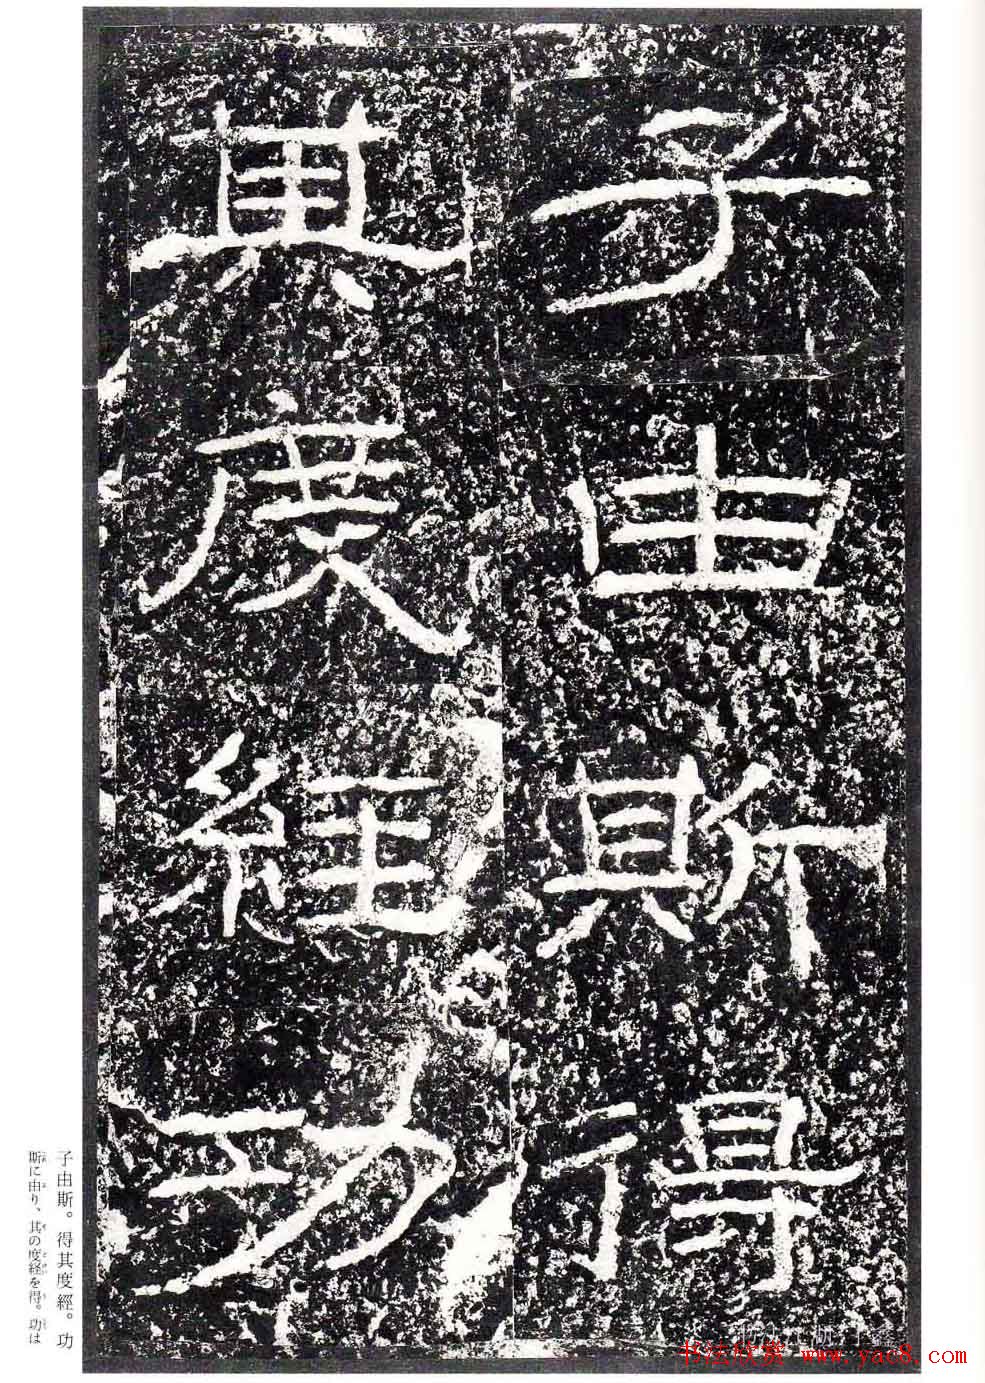 子由斯得
其度經功
子由斯。得其度經。功
斯に由り、其の度経を得。功は
书法欣赏 www.yac8.com